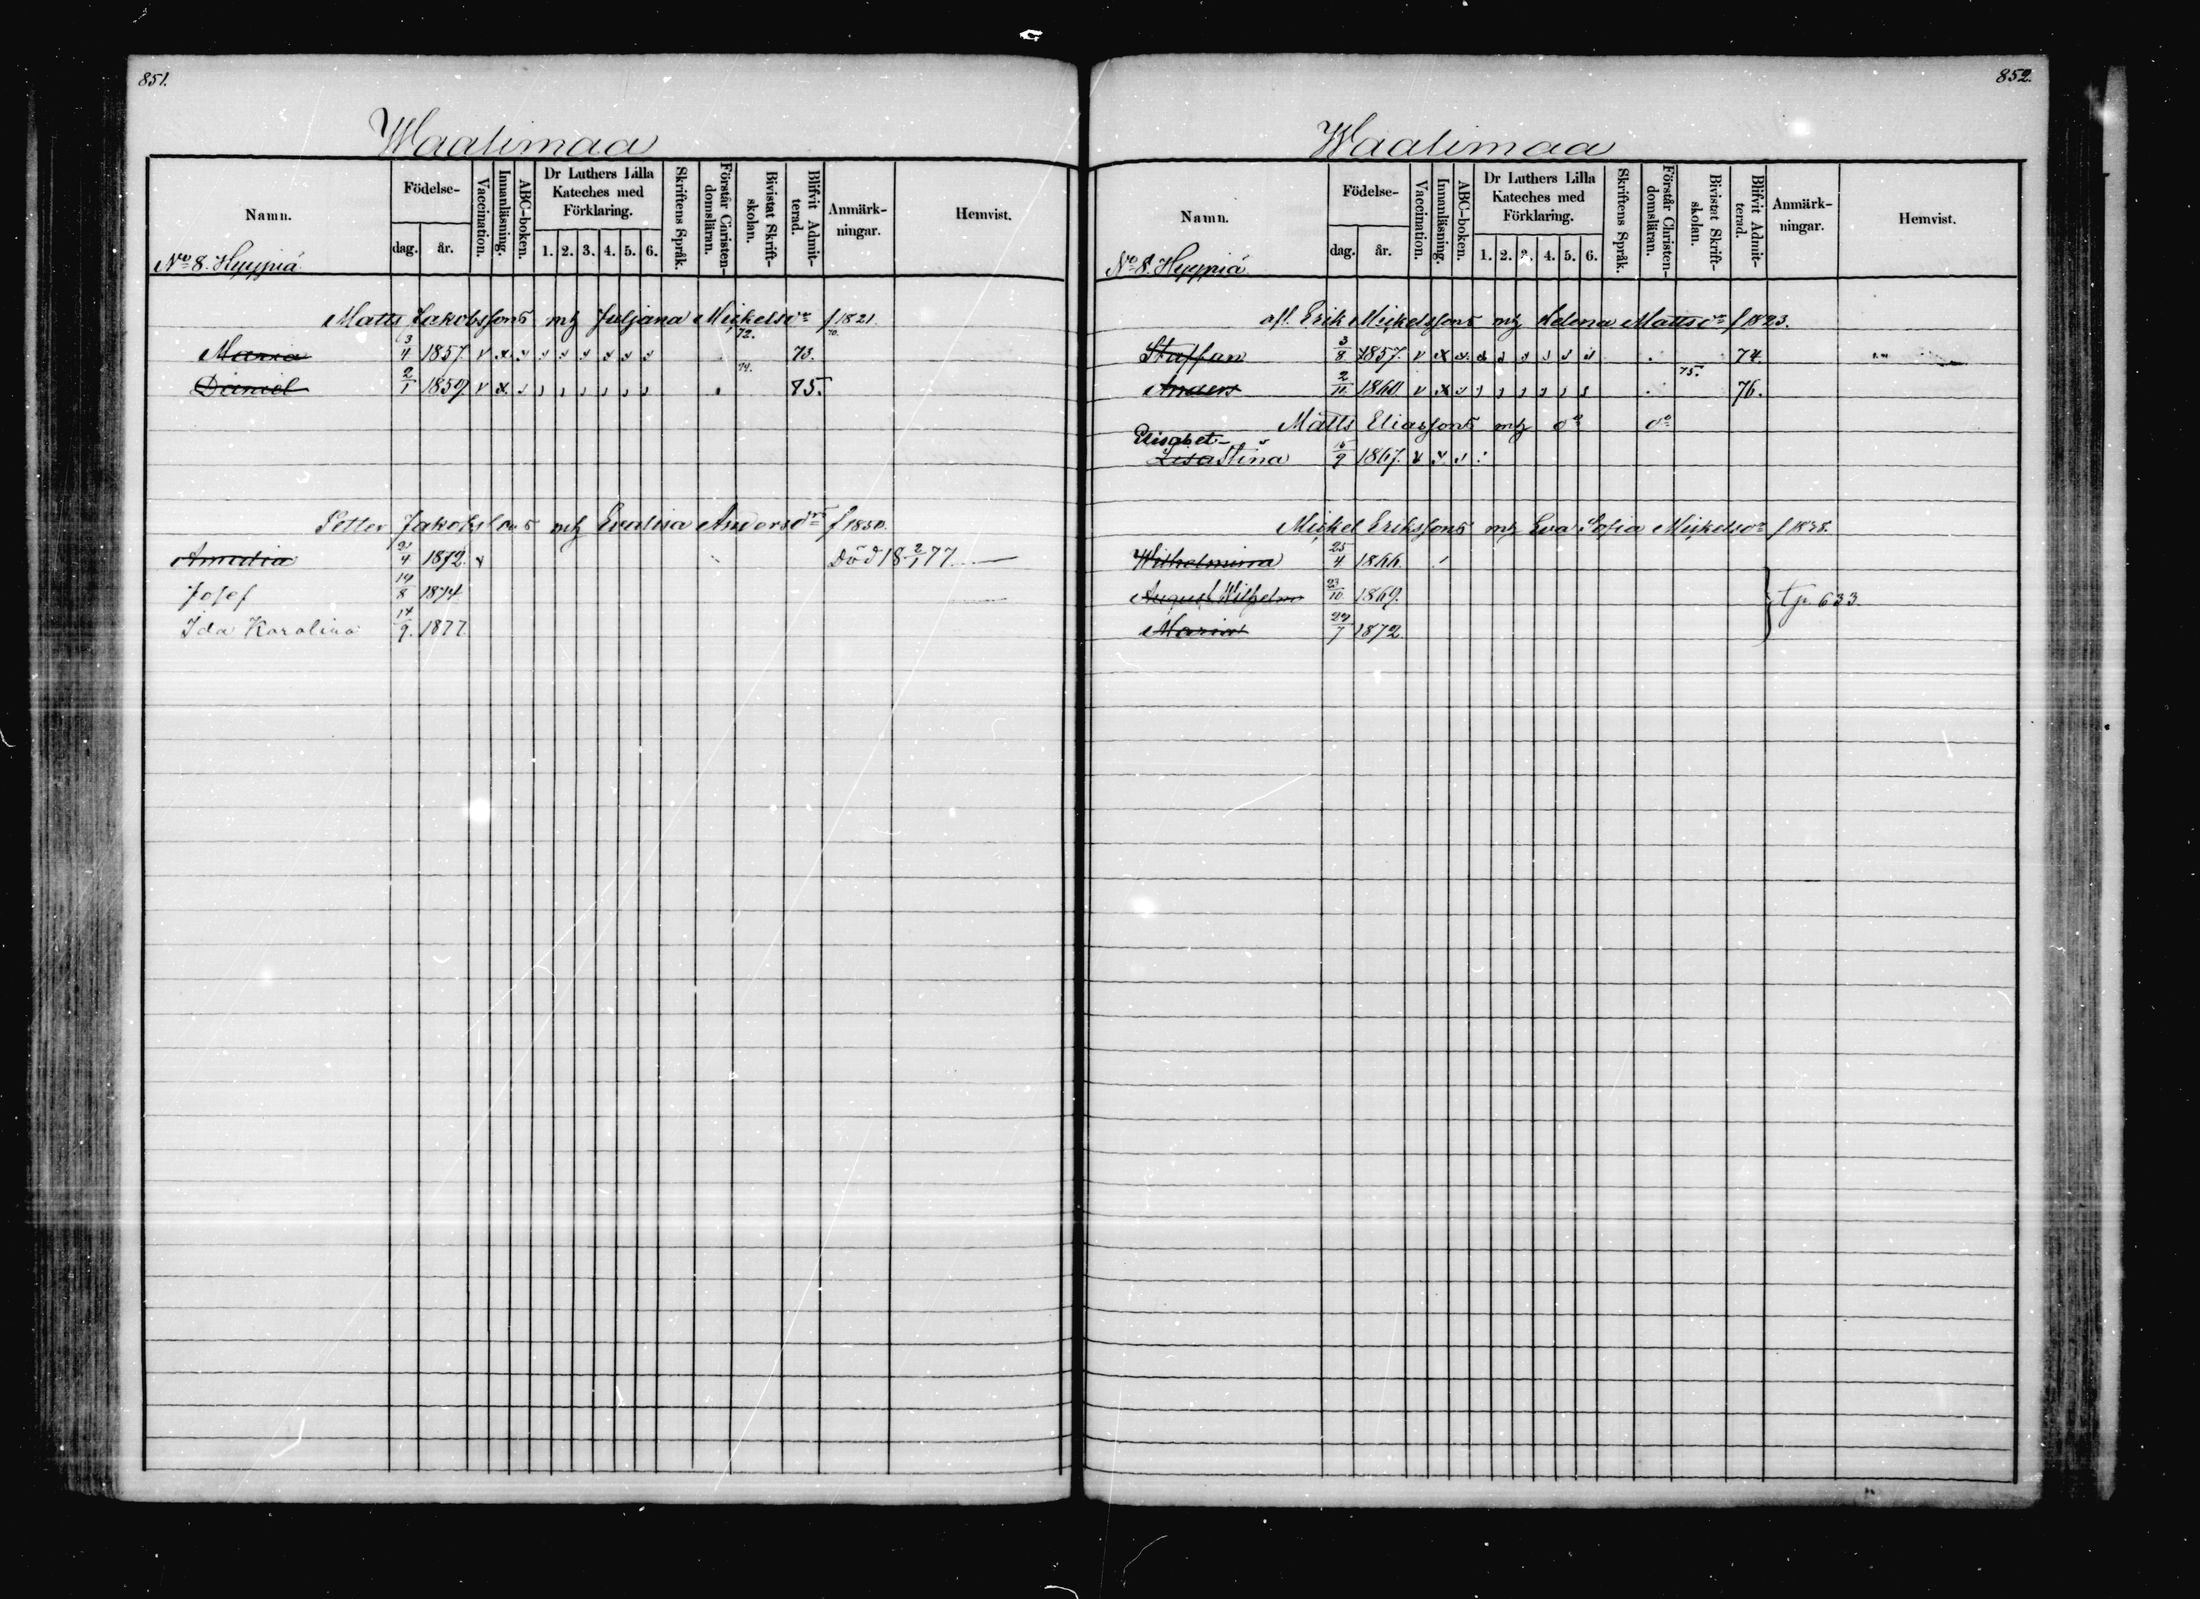 851.
Waalimaa
Namn. Födelse- dag. år. Vaccination. Innanläsning. ABC-boken. Dr Luthers Lilla Kateches med Förklaring. 1. 2. 3. 4. 5. 6. Skriftens Språk. Förstår Christen-domsläran. Bivistat Skrift-skolan. Blifvit Admit-terad. Anmärk-ningar. Hemvist.
No 8. Hyypiä
Matts Jakobssons m/h Juljana Mickelsdr f 1821.
Maria 3/4 1857 v x 72. 73.
Daniel 2/1 1859 v x 74. 85.
Petter Jakobssons m/h Evalisa Andersdr f 1850.
Amalia 21/4 1872. v Död 18 2/1 77
Josef 19/8 1874
Ida Karolina 14/9. 1877
852.
Waalimaa
Namn. Födelse- dag. år. Vaccination. Innanläsning. ABC-boken. Dr Luthers Lilla Kateches med Förklaring. 1. 2. 3. 4. 5. 6. Skriftens Språk. Förstår Christen-domsläran. Bivistat Skrift-skolan. Blifvit Admit-terad. Anmärk-ningar. Hemvist.
No 8. Hyypiä
afl. Erik Mickelssons m/h Helena Mattsdr f 1823.
Staffan 3/8 1857. v x 74.
Anders 2/11 1860 v x 75. 76.
Matts Eliassons m/h do do
Elisabet
Lisa Stina 15/9 1867. v
Mickel Erikssons m/h Eva Sofia Mickelsdr f 1838.
Wilhelmina 25/4 1866.
August Wilhelm 23/10 1869. tp. 633.
Maria 27/7 1872.